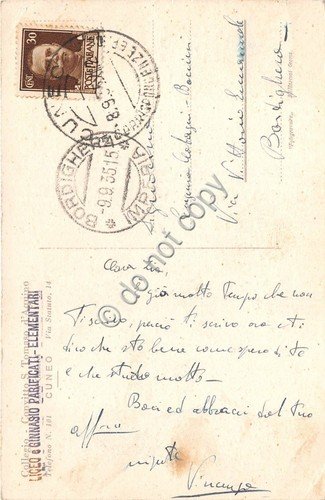 30
CENT.
POSTE ITALIANE
CUNEO
BORDIGHERA
-9.9.35.15
IMPERIA
Signorina
Via Vittorio Emanuele
Bordighera
Cara zia,
è già molto tempo che non
ti scrivo, perciò ti scrivo ora e ti
dico che sto bene come spero di te
e che studio molto.
Baci ed abbracci dal tuo
aff.mo
nipote
Vincenzo
Collegio - Convitto S. Tommaso d'Aquino
LICEO E GINNASIO PARIFICATI - ELEMENTARI
CUNEO
Via Statuto, 14
do not copy